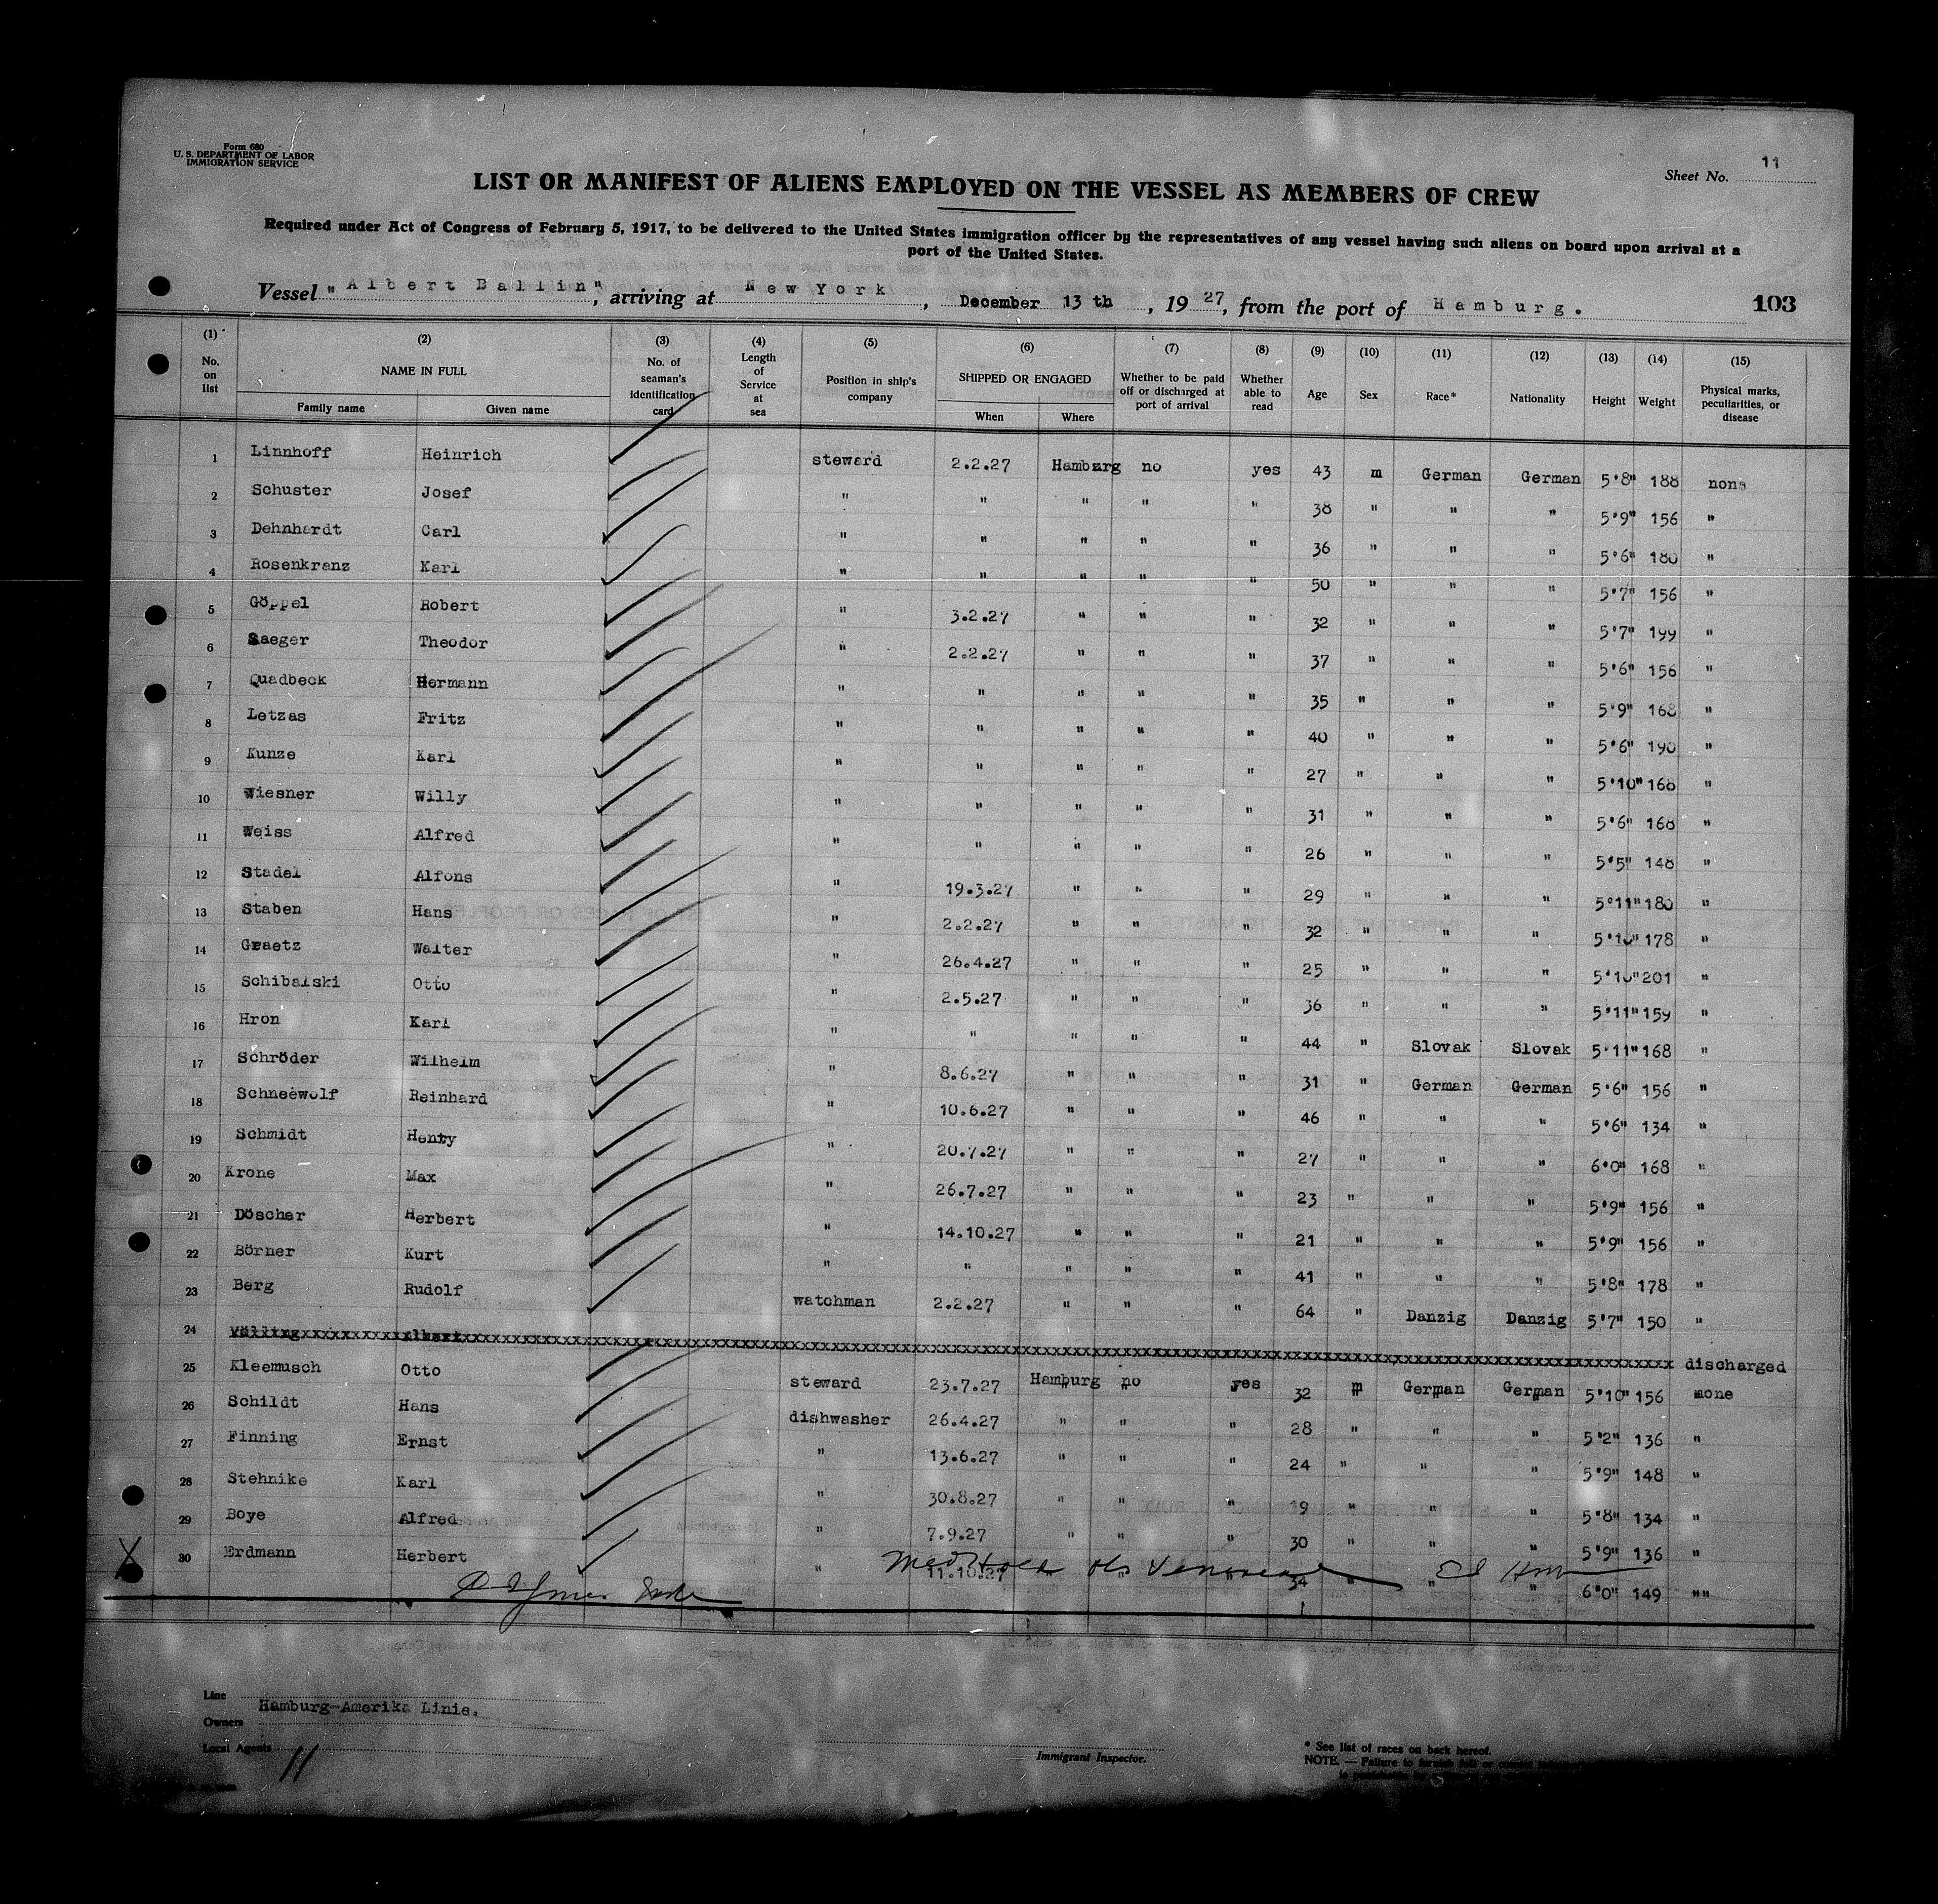 Form 680
U. S. DEPARTMENT OF LABOR
IMMIGRATION SERVICE
Sheet No. 11
LIST OR MANIFEST OF ALIENS EMPLOYED ON THE VESSEL AS MEMBERS OF CREW
Required under Act of Congress of February 5, 1917, to be delivered to the United States immigration officer by the representatives of any vessel having such aliens on board upon arrival at a
port of the United States.
Vessel "Albert Ballin", arriving at New York, December 13 th, 1927, from the port of Hamburg. 103
(1) (2) (3) (4) (5) (6) (7) (8) (9) (10) (11) (12) (13) (14) (15)
No. on list NAME IN FULL Family name Given name No. of seaman's identification card Length of Service at sea Position in ship's company SHIPPED OR ENGAGED When Where Whether to be paid off or discharged at port of arrival Whether able to read Age Sex Race* Nationality Height Weight Physical marks, peculiarities, or disease
1 Linnhoff Heinrich steward 2.2.27 Hamburg no yes 43 m German German 5'8" 188 none
2 Schuster Josef " " " " " 38 " " " 5'9" 156 "
3 Dehnhardt Carl " " " " " 36 " " " 5'6" 180 "
4 Rosenkranz Karl " " " " " 50 " " " 5'7" 156 "
5 Göppel Robert " 3.2.27 " " " 32 " " " 5'7" 199 "
6 Saeger Theodor " 2.2.27 " " " 37 " " " 5'6" 156 "
7 Quadbeck Hermann " " " " " 35 " " " 5'9" 168 "
8 Letzas Fritz " " " " " 40 " " " 5'6" 190 "
9 Kunze Karl " " " " " 27 " " " 5'10" 168 "
10 Wiesner Willy " " " " " 31 " " " 5'6" 168 "
11 Weiss Alfred " " " " " 26 " " " 5'5" 148 "
12 Stadel Alfons " 19.3.27 " " " 29 " " " 5'11" 180 "
13 Staben Hans " 2.2.27 " " " 32 " " " 5'10" 178 "
14 Graetz Walter " 26.4.27 " " " 25 " " " 5'10" 201 "
15 Schibalski Otto " 2.5.27 " " " 36 " " " 5'11" 159 "
16 Hron Karl " " " " " 44 " Slovak Slovak 5'11" 168 "
17 Schröder Wilhelm " 8.6.27 " " " 31 " German German 5'6" 156 "
18 Schneewolf Reinhard " 10.6.27 " " " 46 " " " 5'6" 134 "
19 Schmidt Henry " 20.7.27 " " " 27 " " " 6'0" 168 "
20 Krone Max " 26.7.27 " " " 23 " " " 5'9" 156 "
21 Döscher Herbert " 14.10.27 " " " 21 " " " 5'9" 156 "
22 Börner Kurt " " " " " 41 " " " 5'8" 178 "
23 Berg Rudolf watchman 2.2.27 " " " 64 " Danzig Danzig 5'7" 150 "
24 discharged
25 Kleemusch Otto steward 23.7.27 Hamburg no yes 32 m German German 5'10" 156 none
26 Schildt Hans dishwasher 26.4.27 " " " 28 " " " 5'2" 136 "
27 Finning Ernst " 13.6.27 " " " 24 " " " 5'9" 148 "
28 Stehnike Karl " 30.8.27 " " " 19 " " " 5'8" 134 "
29 Boye Alfred " 7.9.27 " " " 30 " " " 5'9" 136 "
X 30 Erdmann Herbert " 11.10.27 " " " 34 " " " 6'0" 149 ""
Line
Hamburg-Amerika Linie.
Owners
Local Agents
11
Immigrant Inspector.
* See list of races on back hereof.
NOTE. — Failure to furnish